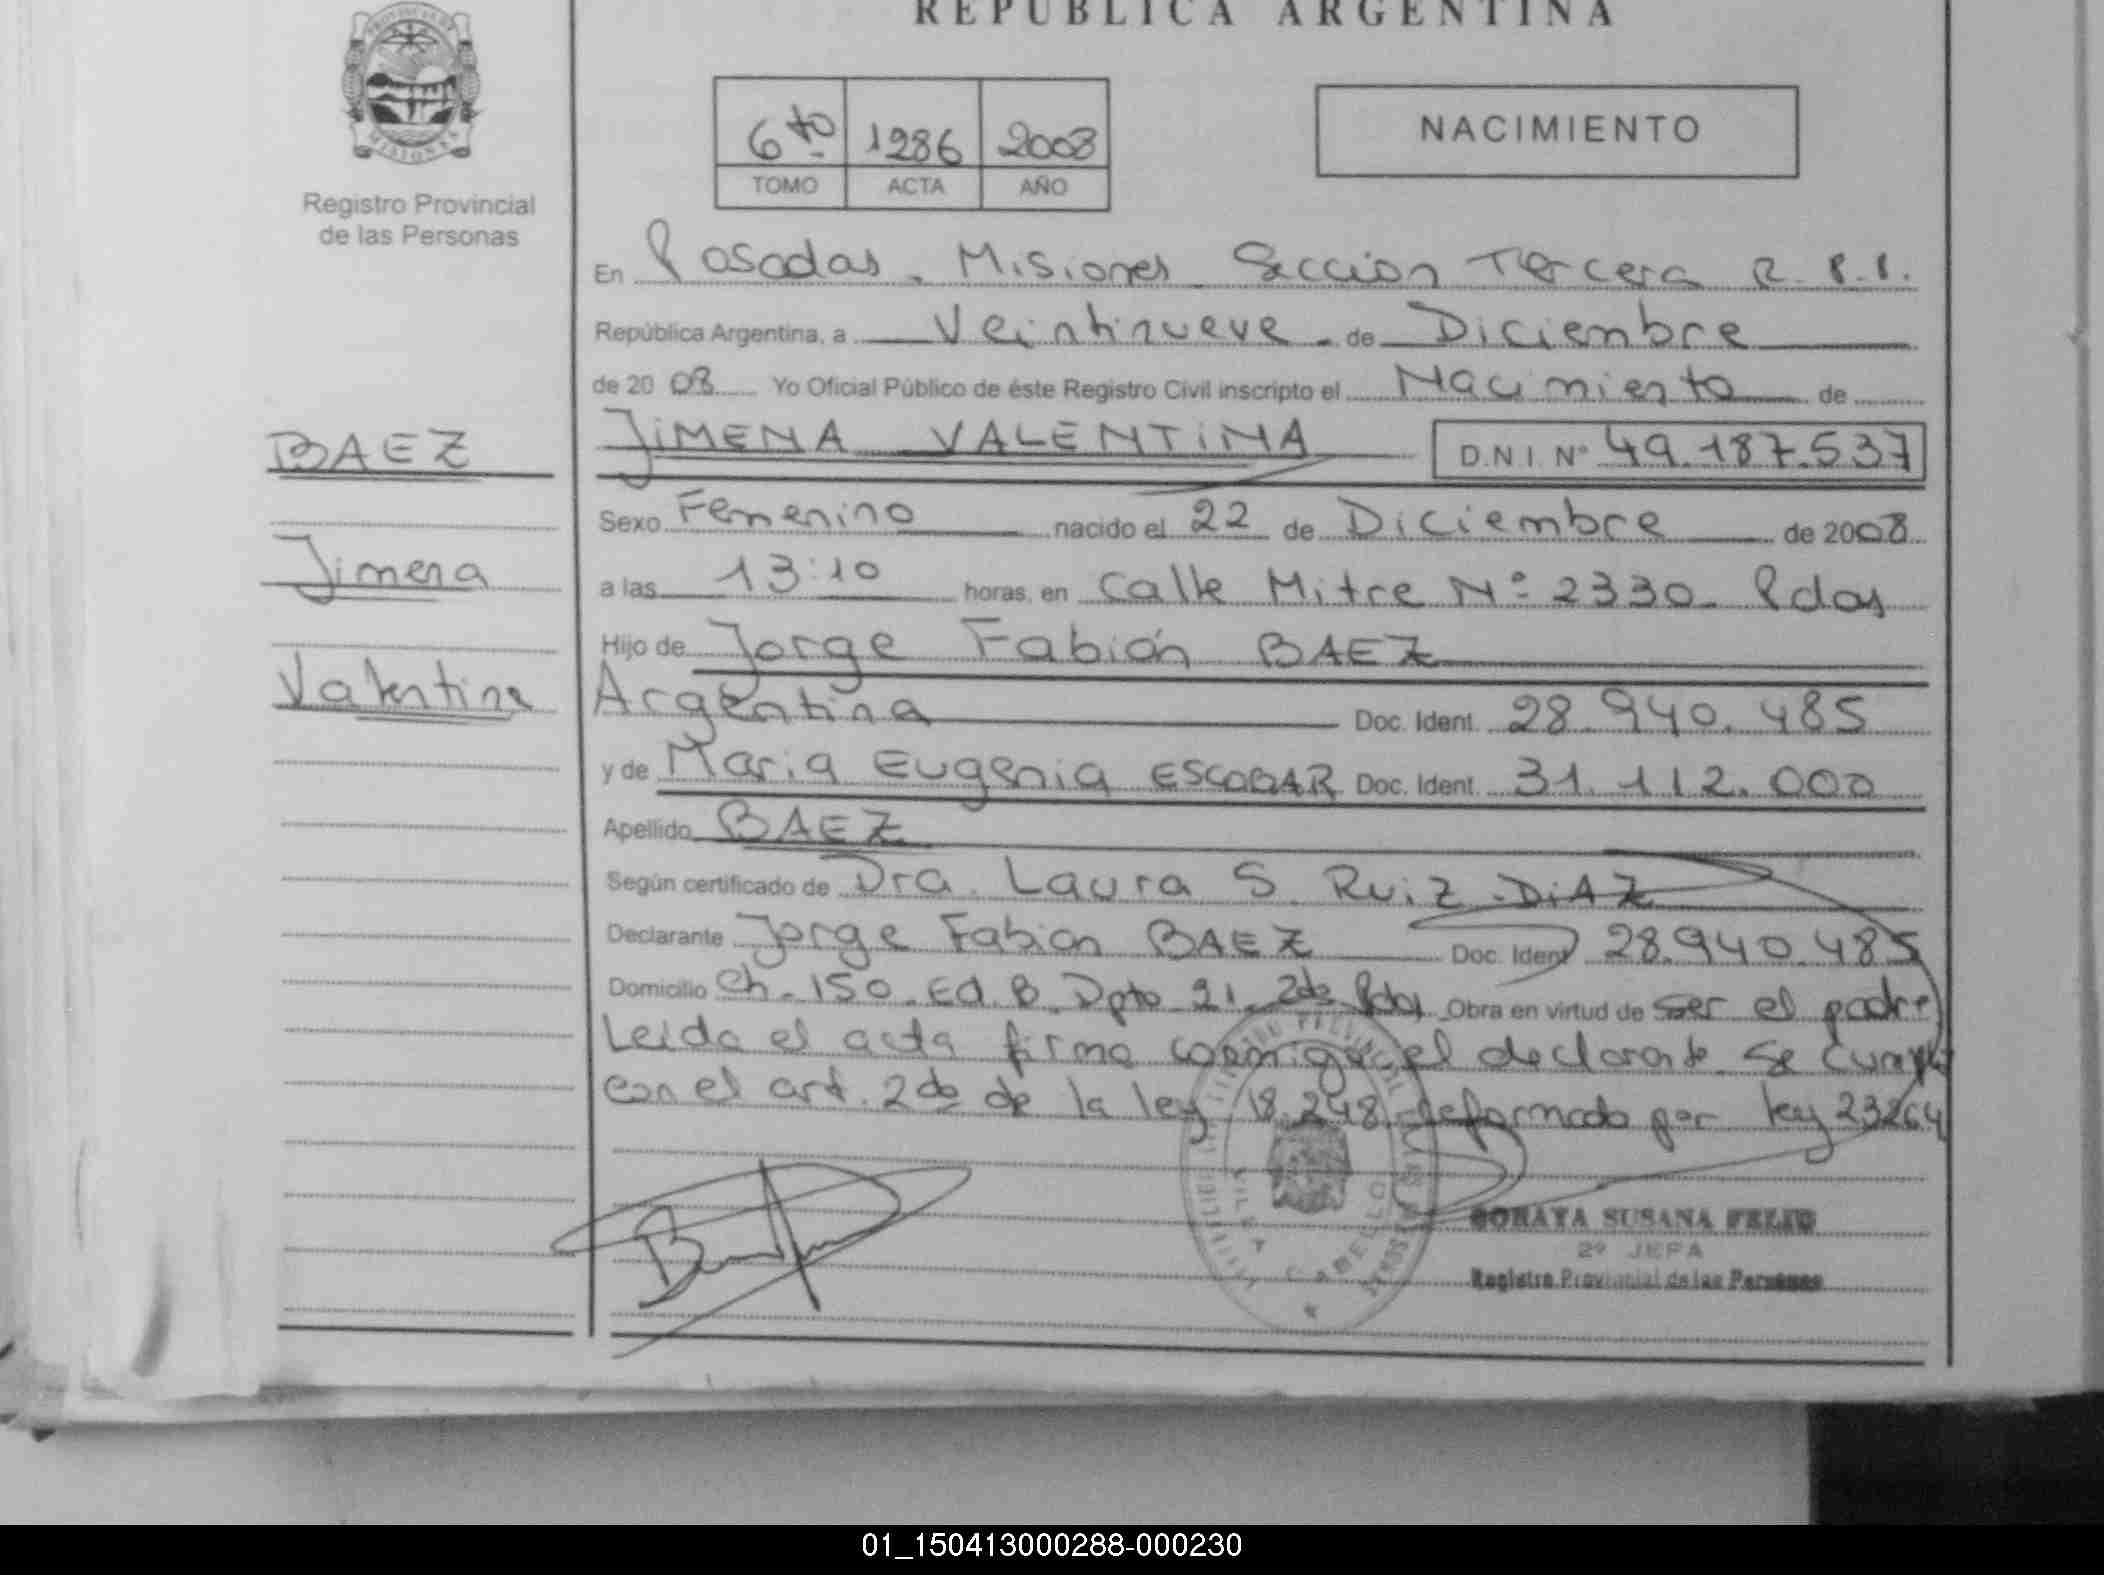 REPUBLICA ARGENTINA
PROVINCIA DE
MISIONES
Registro Provincial
de las Personas
6to 1286 2008
TOMO ACTA AÑO
NACIMIENTO
En Posadas. Misiones Seccion Tercera R.P.P.
República Argentina, a Veintinueve de Diciembre
de 2008 Yo Oficial Público de éste Registro Civil inscripto el Nacimiento de
BAEZ
Jimena
Valentina
JiMENA VALENTiNA D.N.I. Nº 49.187.537
Sexo Femenino nacido el 22 de Diciembre de 2008
a las 13:10 horas, en Calle Mitre Nº 2330. Pdas
Hijo de Jorge Fabián BAEZ
Argentina Doc. Ident. 28.940.485
y de Maria Eugenia ESCOBAR Doc. Ident. 31.112.000
Apellido BAEZ
Según certificado de Dra. Laura S. Ruiz DiAZ
Declarante Jorge Fabian BAEZ Doc. Ident 28.940.485
Domicilio Ch. 150. Ed. B. Dpto 21. 2do Pdas Obra en virtud de ser el padre
Leida el acta firma conmigo el declarante. Se cumple
con el art. 2do de la ley 18.248 reformado por ley 23264
VILLA CABELLO
SORAYA SUSANA FELIU
2º JEFA
Registro Provincial de las Personas
01_150413000288-000230